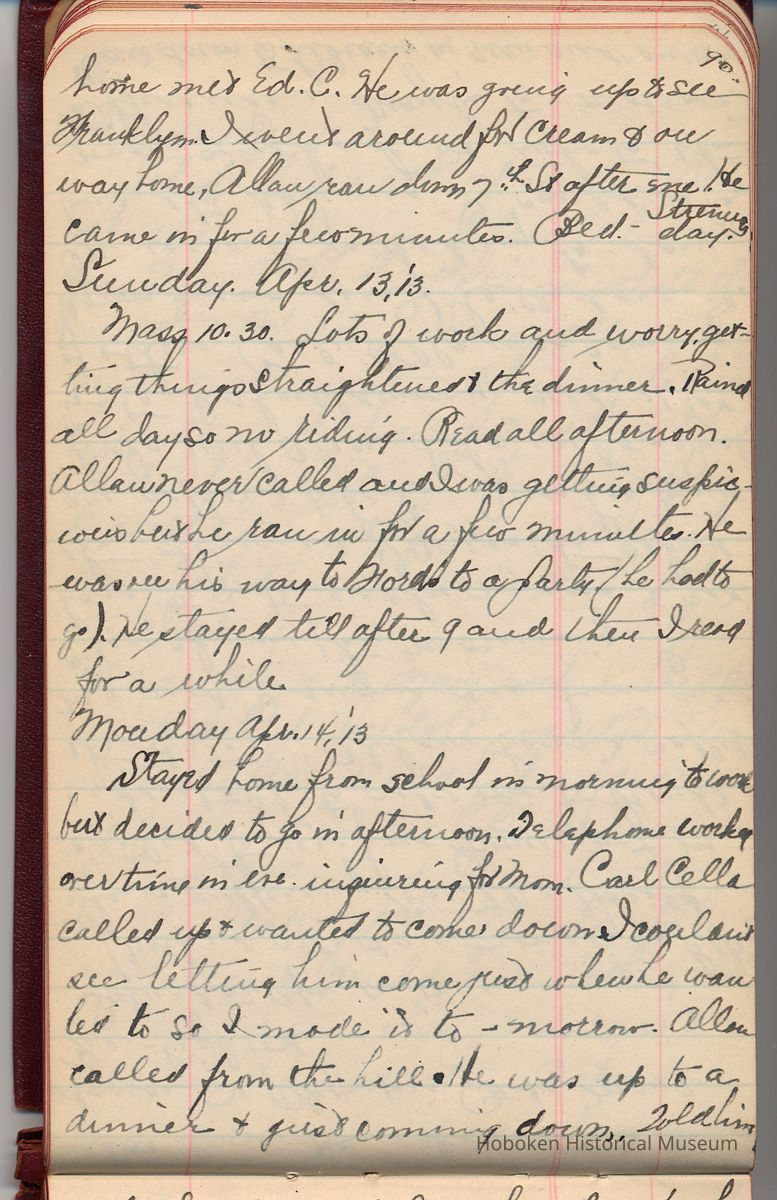 90.
home met Ed. C. He was going up to see
Franklyn. I went around for cream & on
way home, Allan ran down 7th St after me. He
came in for a few minutes. Bed. - Strenuous day.
Sunday. Apr. 13,'13.
Mass 10.30. Lots of work and worry, get-
ting things straightened & the dinner. Rained
all day so no riding. Read all afternoon.
Allan never called and I was getting suspic-
ious but he ran in for a few minutes. He
was on his way to Fords to a party (he had to
go). He stayed till after 9 and then I read
for a while
Monday Apr. 14,'13
Stayed home from school in morning to work
but decided to go in afternoon. Telephone worked
overtime in eve. inquiring for Mom. Carl Cella
called up & wanted to come down. I couldn't
see letting him come just when he wan
ted to so I made it to-morrow. Allan
called from the hill. He was up to a
dinner & just coming down. Told him
Hoboken Historical Museum